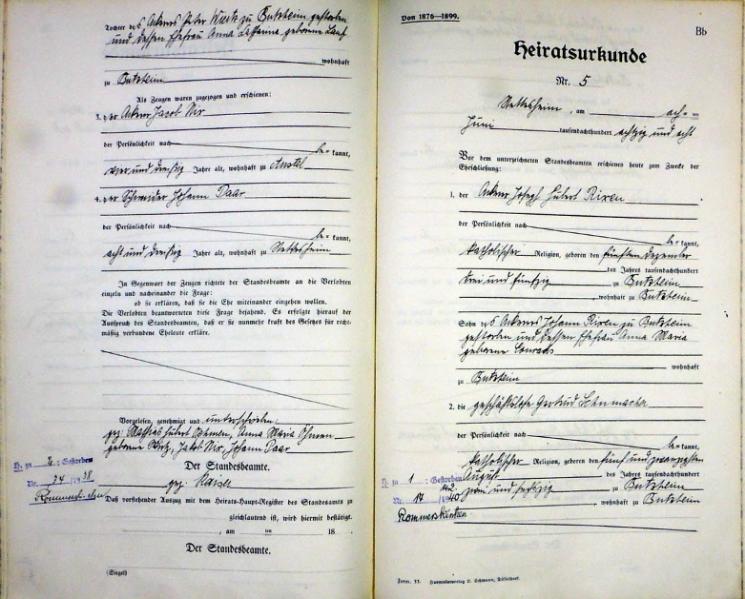 Tochter des Ackerers Peter Kurtz zu Butzheim gestorben
und dessen Ehefrau Anna geborene
wohnhaft
zu Butzheim
Als Zeugen waren zugezogen und erschienen:
3. der Ackerer Jacob
der Persönlichkeit nach
be= kannt,
vier und dreißig Jahre alt, wohnhaft zu Anstel
4. der Schneider Johann Daar
der Persönlichkeit nach
be= kannt,
acht und dreißig Jahre alt, wohnhaft zu Nettesheim
In Gegenwart der Zeugen richtete der Standesbeamte an die Verlobten
einzeln und nacheinander die Frage:
ob sie erklären, daß sie die Ehe miteinander eingehen wollen.
Die Verlobten beantworteten diese Frage bejahend. Es erfolgte hierauf der
Ausspruch des Standesbeamten, daß er sie nunmehr kraft des Gesetzes für recht-
mäßig verbundene Eheleute erkläre.
Vorgelesen, genehmigt und unterschrieben:
gez: Mathias Hubert Anna Maria
geborene Jakob Johann Daar
Der Standesbeamte.
gez: Kaiser
H. zu 2: Gestorben
Nr. 24 /1938
Rommerskirchen
Daß vorstehender Auszug mit dem Heirats-Haupt-Register des Standesamts zu
gleichlautend ist, wird hiermit bestätigt.
, am ten 18
Der Standesbeamte.
(Siegel)
Von 1876—1899.
Bb
Heiratsurkunde
Nr. 5
Nettesheim, am ach =
Juni tausendachthundert achtzig und acht
Vor dem unterzeichneten Standesbeamten erschienen heute zum Zwecke der
Eheschließung:
1. der Ackerer Joseph Hubert Rixen
der Persönlichkeit nach
be= kannt,
katholischer Religion, geboren den fünften Dezember
des Jahres tausendachthundert
drei und fünfzig zu Butzheim
, wohnhaft zu Butzheim
Sohn des Ackerers Johann Rixen zu Butzheim
gestorben und dessen Ehefrau Anna Maria
geborene Conrads
wohnhaft
zu Butzheim
2. die geschäftslose Gertrud Schumacher
der Persönlichkeit nach
be= kannt,
katholischer Religion, geboren den fünf und zwanzigsten
August des Jahres tausendachthundert
zwei und sechszig zu Butzheim
, wohnhaft zu Butzheim
H. zu 1 Gestorben
Nr. 17 /1940
Rommerskirchen